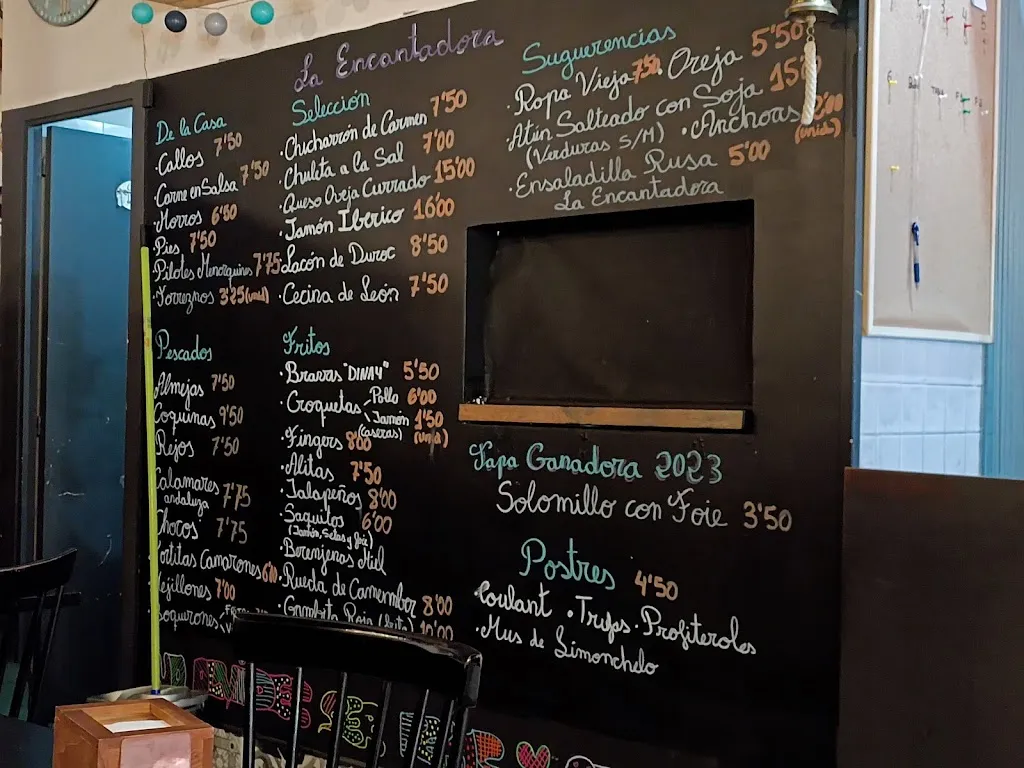 La Encantadora
De la Casa
Callos 7'50
Carne en Salsa 7'50
Morros 6'50
Pies 7'50
Pilotes Menorquines 7'75
Torreznos 3'25 (unid)
Pescados
Almejas 7'50
Coquinas 9'50
Rejos 7'50
Calamares 7'75
andaluza
Chocos 7'75
Tortitas Camarones
Mejillones 7'00
Boquerones
Selección
Chicharrón de Carmen 7'50
Chuleta a la Sal 7'00
Queso Oveja Currado 15'00
Jamón Iberico 16'00
Lacón de Duroc 8'50
Cecina de León 7'50
Fritos
Bravas "DINAY" 5'50
Croquetas Pollo 6'00
Jamón 1'50
(caseras) (unid)
Fingers 8'00
Alitas 7'50
Jalapeños 8'00
Saquitos 6'00
(Jamón, Setas y
Berenjenas Miel
Rueda de Camember 8'00
Gambita Roja 10'00
Suguerencias
Ropa Vieja 7'50 Oreja 5'50
Atún Salteado con Soja
(Verduras S/M) Anchoas
(unid)
Ensaladilla Rusa 5'00
La Encantadora
Tapa Ganadora 2023
Solomillo con Foie 3'50
Postres 4'50
Coulant Trufas Profiteroles
Mus de Limonchelo